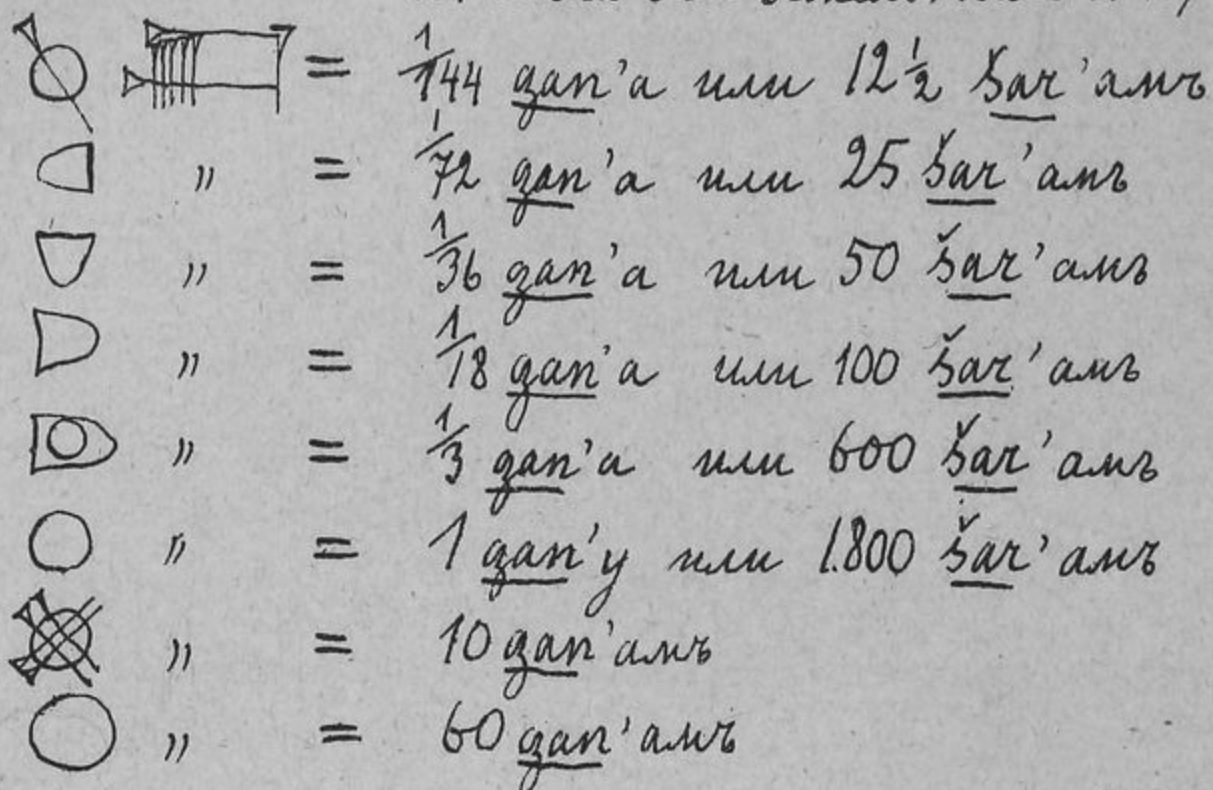 = 1/144 gan'а или 12½ šar'амъ
„ = 1/72 gan'а или 25 šar'амъ
„ = 1/36 gan'а или 50 šar'амъ
„ = 1/18 gan'а или 100 šar'амъ
„ = 1/3 gan'а или 600 šar'амъ
„ = 1 gan'у или 1.800 šar'амъ
„ = 10 gan'амъ
„ = 60 gan'амъ